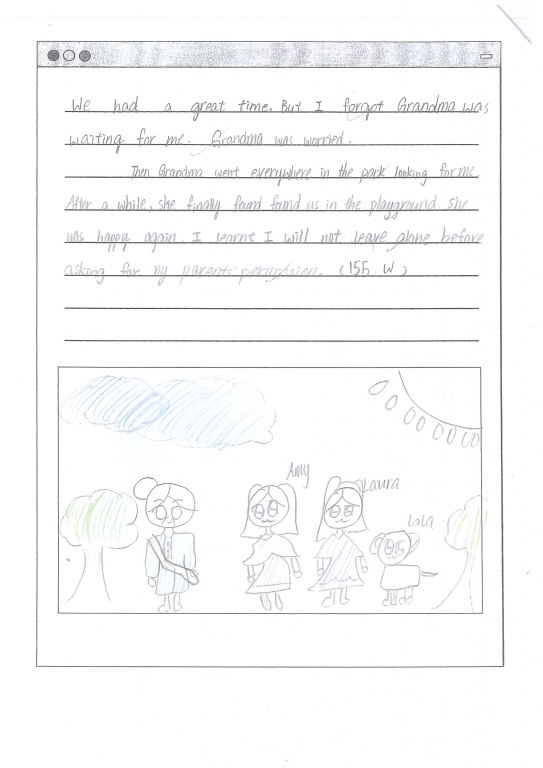 We had a great time. But I forgot Grandma was
waiting for me. Grandma was worried.
Then Grandma went everywhere in the park looking for me
After a while, she finally found found us in the playground. She
was happy again. I learnt I will not leave alone before
asking for my parents' permission. (155 W)
Amy
Laura
LaLa